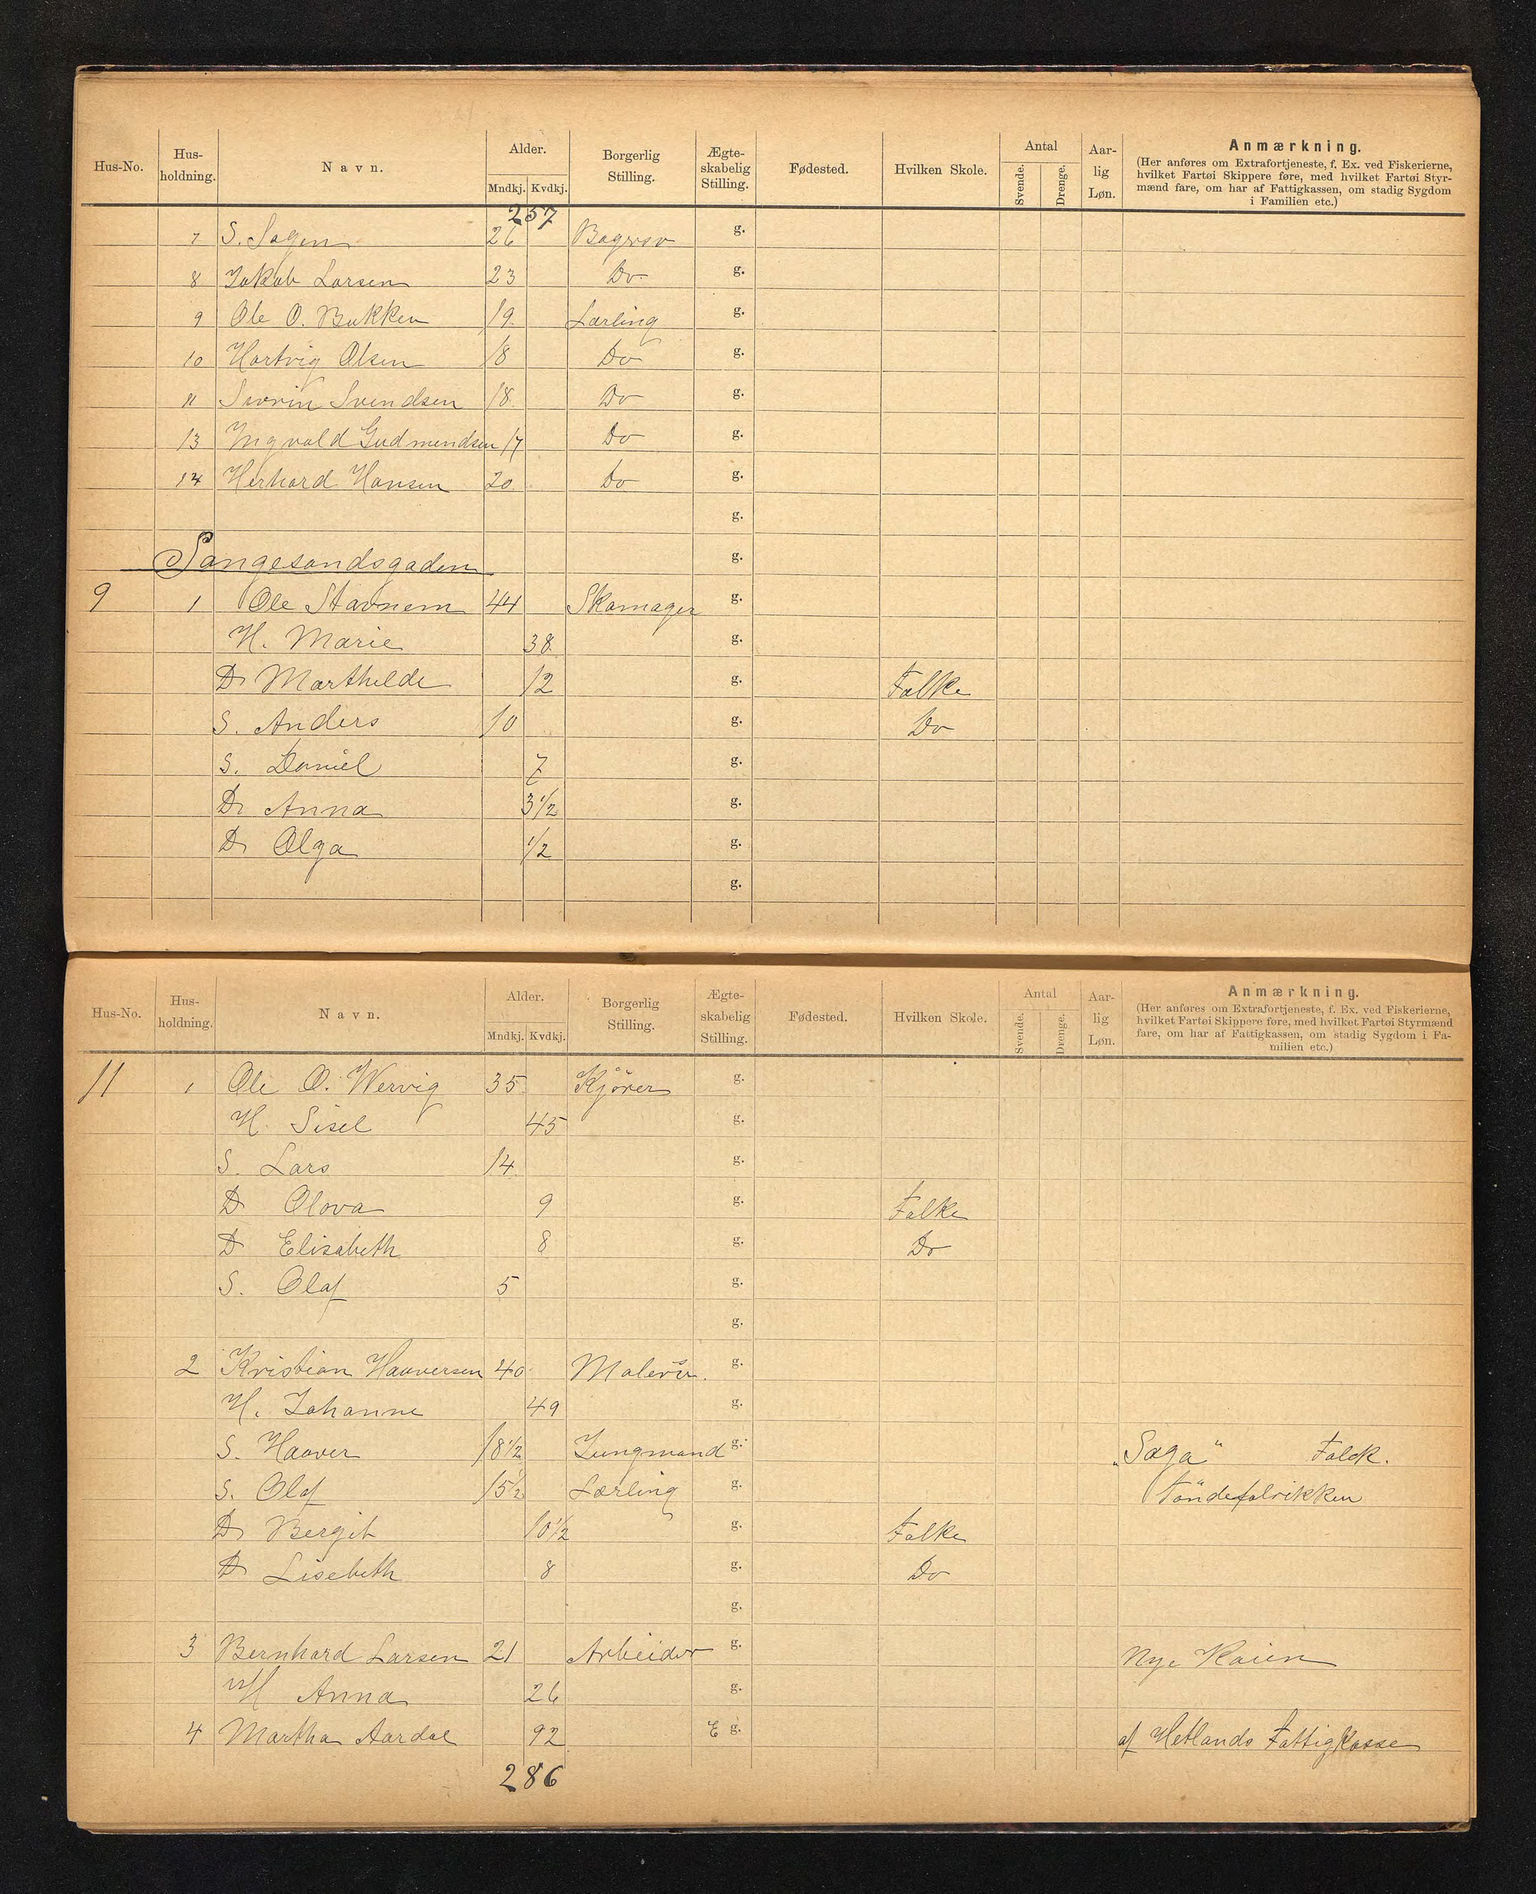 Hus-No. Hus-holdning. Navn. Alder. Mndkj. Kvdkj. Borgerlig Stilling. Ægte-skabelig Stilling. Fødested. Hvilken Skole. Antal Svende. Drenge. Aar-lig Løn. Anmærkning.
(Her anføres om Extrafortjeneste, f. Ex. ved Fiskerierne,
hvilket Fartøi Skippere føre, med hvilket Fartøi Styr-
mænd fare, om har af Fattigkassen, om stadig Sygdom
i Familien etc.)
257
7 S. Sagen 26 g.
8 Jakob Larsen 23 Do g.
9 Ole O. Bakken 19 Lærling g.
10 Hartvig Olsen 18 Do g.
11 Sivrin Svendsen 18 Do g.
13 Ingvald Gudmundsen 17 Do g.
14 Herhard Hansen 20 Do g.
g.
Sangesandsgaden g.
9 1 Ole Stavnem 44 Skomager g.
H. Marie 38 g.
D. Marthilde 12 g. Folke
S. Anders 10 g. Do
S. Daniel 7 g.
D. Anna 3 1/2 g.
D. Olga 1/2 g.
g.
Hus-No. Hus-holdning. Navn. Alder. Mndkj. Kvdkj. Borgerlig Stilling. Ægte-skabelig Stilling. Fødested. Hvilken Skole. Antal Svende. Drenge. Aar-lig Løn. Anmærkning.
(Her anføres om Extrafortjeneste, f. Ex. ved Fiskerierne,
hvilket Fartøi Skippere føre, med hvilket Fartøi Styrmænd
fare, om har af Fattigkassen, om stadig Sygdom i Fa-
milien etc.)
11 1 Ole O. Wervig 35 Kjører g.
H. Sisel 45 g.
S. Lars 14 g.
D Olava 9 g. Folke
D Elisabeth 8 g. Do
S. Olaf 5 g.
g.
2 Kristian Haaversen 40 g.
H. Johanne 49 g.
S. Haaver 18 1/2 Jungmand g. „Saga" Falck.
S. Olaf 15 1/2 Lærling g. Töndefabrikken
D. Bergit 10 1/2 g. Folke
D. Lisebeth 8 g. Do
g.
3 Bernhard Larsen 21 Arbeider g. Nye Kaien
H Anna 26 g.
4 Martha Aardal 92 E g. af Hetlands Fattigkasse
286